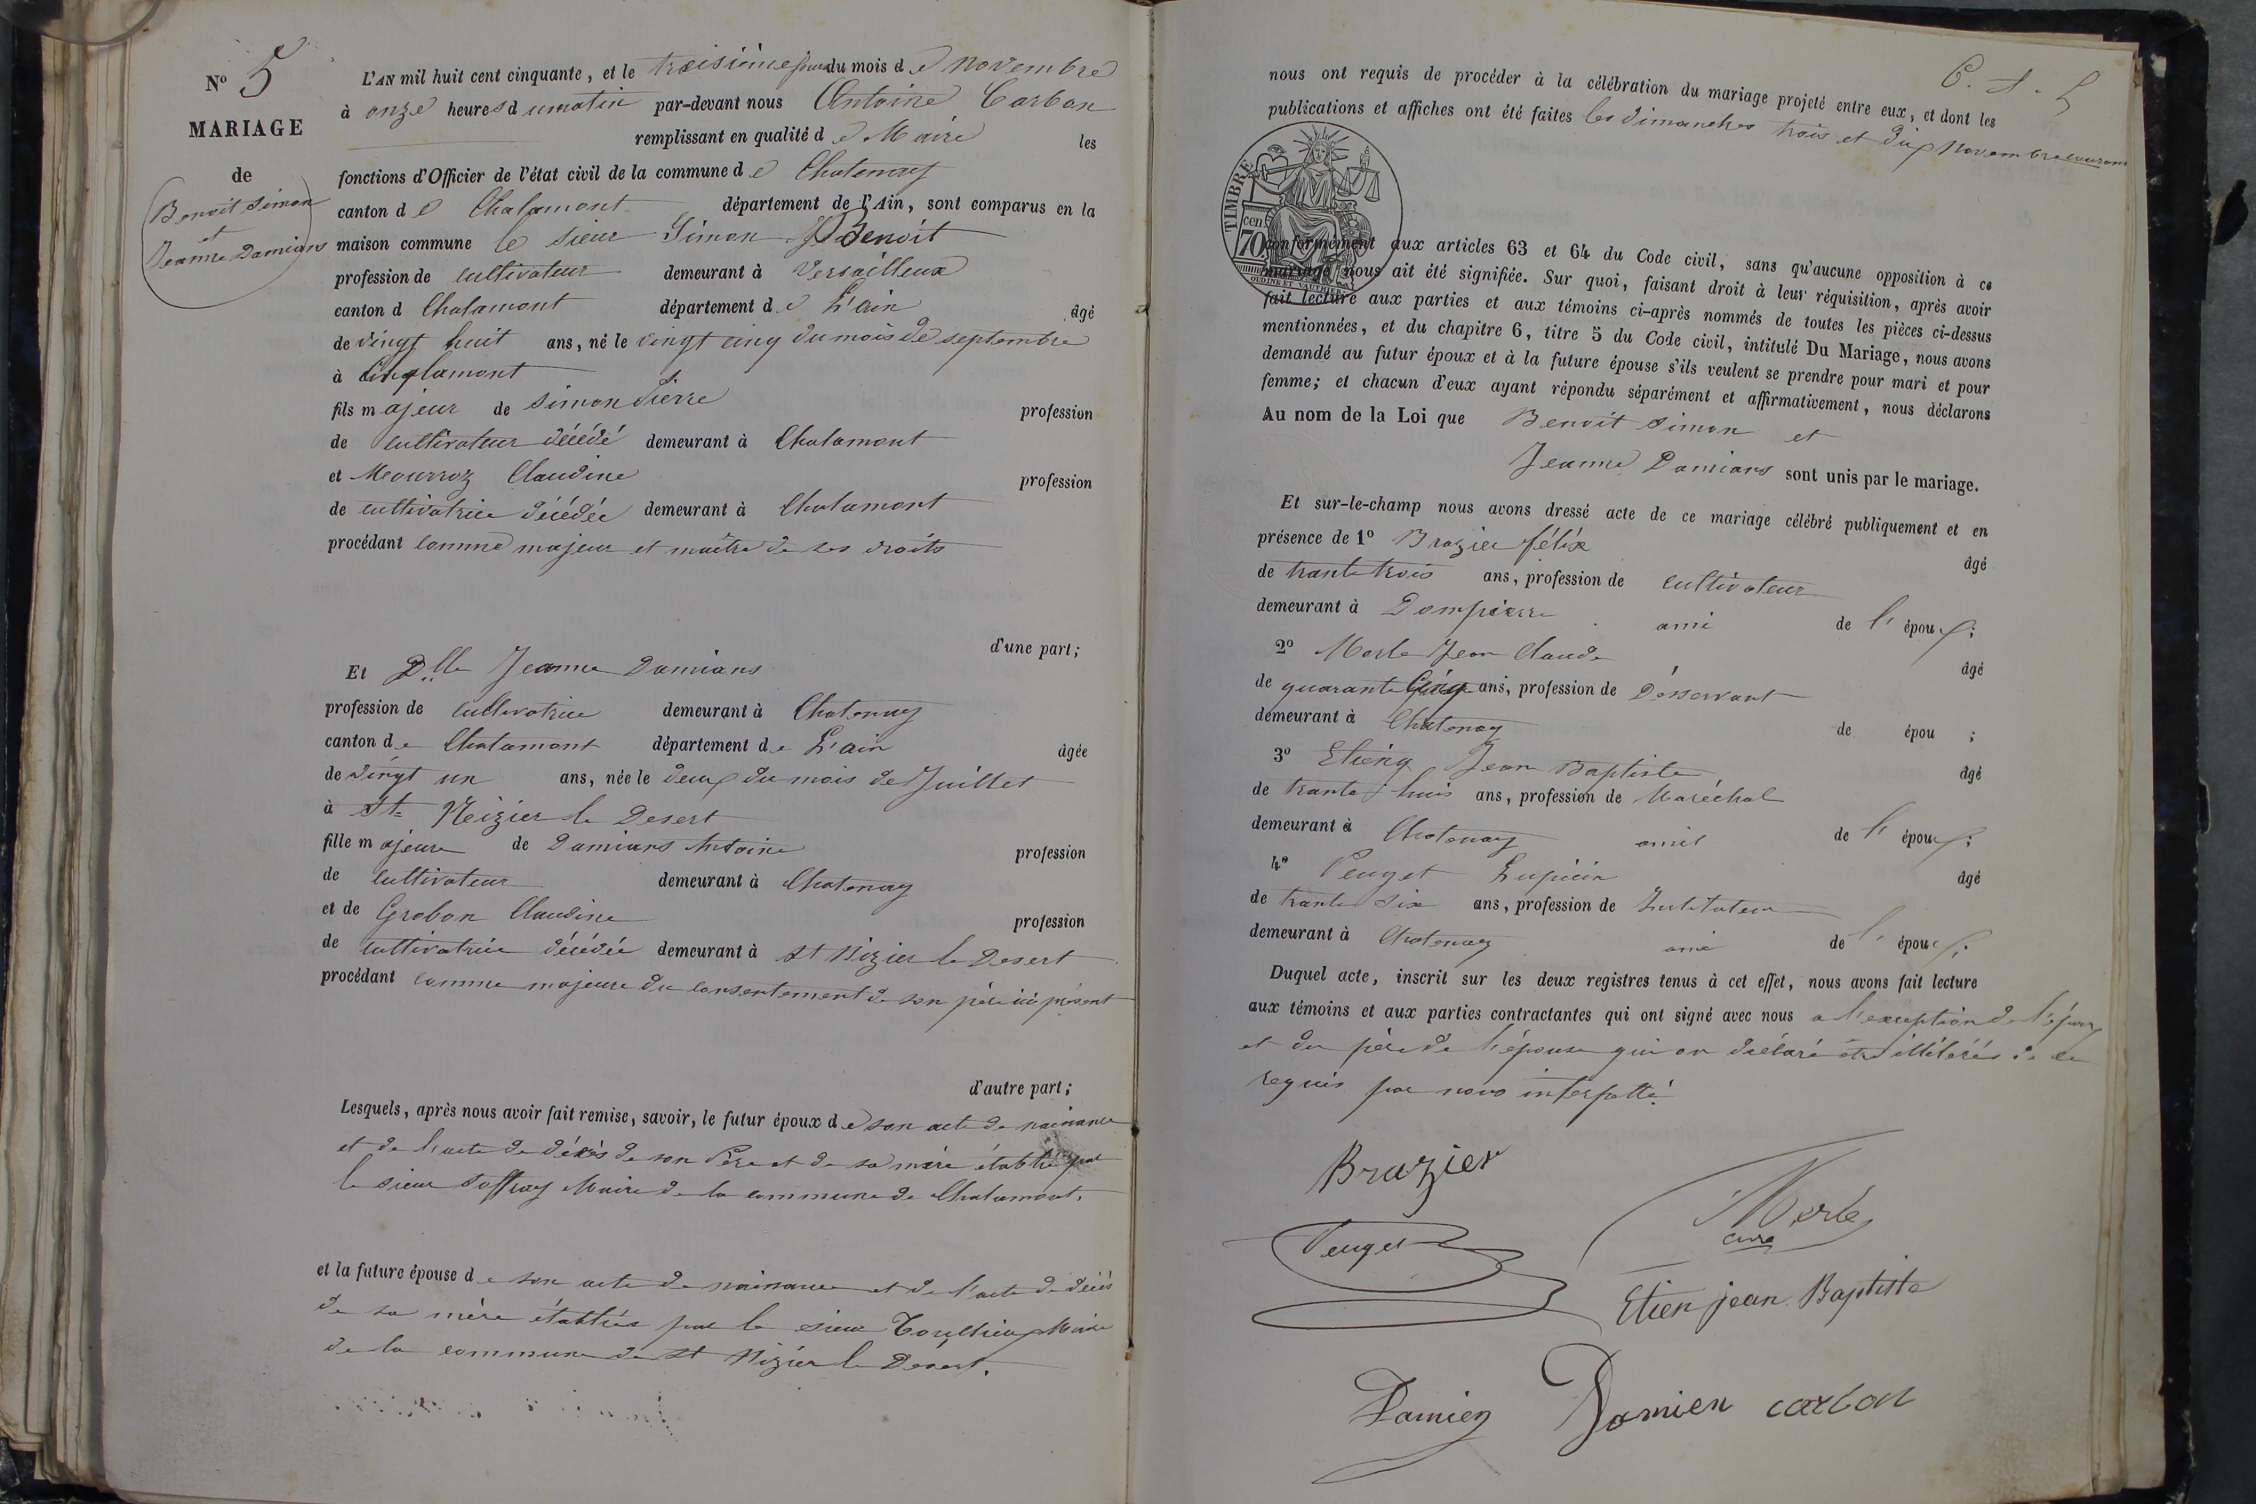 N° 5
MARIAGE
de
Benoit Simon
et
Jeanne Damians
L'AN mil huit cent cinquante, et le troisième jour du mois de novembre
à onze heures du matin par-devant nous Antoine Carbon
remplissant en qualité de Maire les
fonctions d'Officier de l'état civil de la commune de Chatenay
canton de Chalamont département de l'Ain, sont comparus en la
maison commune le sieur Simon Benoit
profession de cultivateur demeurant à Versailleux
canton d Chalamont département de L'ain âgé
de vingt huit ans, né le vingt cinq du mois de septembre
à
fils majeur de Simon Pierre profession
de cultivateur décédé demeurant à Chalamont
et Claudine profession
de cultivatrice décédée demeurant à Chalamont
procédant comme majeur et maître de ses droits
d'une part;
Et Dlle Jeanne Damians
profession de cultivatrice demeurant à Chatenay
canton de Chalamont département de L'ain âgée
de vingt un ans, née le deux du mois de Juillet
à St Neizier le Desert
fille majeure de Damians Antoine profession
de cultivateur demeurant à Chatenay
et de Grobon Claudine profession
de cultivatrice décédée demeurant à St Nizier le Desert
procédant comme majeure du consentement de son père ici présent
d'autre part;
Lesquels, après nous avoir fait remise, savoir, le futur époux de son acte de naissance
et de l'acte de décès de son Père et de sa mère établie par
le sieur Maire de la commune de Chalamont.
et la future épouse de son acte de naissance et de l'acte de décès
de sa mère établies par le sieur Maire
de la commune de St Nizier le Désert.
nous ont requis de procéder à la célébration du mariage projeté entre eux, et dont les
publications et affiches ont été faites les dimanches trois et dix Novembre courant
TIMBRE
cen
70
OUDINÉ ET VAUTHIER
conformément aux articles 63 et 64 du Code civil, sans qu'aucune opposition à ce
mariage nous ait été signifiée. Sur quoi, faisant droit à leur réquisition, après avoir
fait lecture aux parties et aux témoins ci-après nommés de toutes les pièces ci-dessus
mentionnées, et du chapitre 6, titre 5 du Code civil, intitulé Du Mariage, nous avons
demandé au futur époux et à la future épouse s'ils veulent se prendre pour mari et pour
femme; et chacun d'eux ayant répondu séparément et affirmativement, nous déclarons
Au nom de la Loi que Benoit Simon et
Jeanne Damians sont unis par le mariage.
Et sur-le-champ nous avons dressé acte de ce mariage célébré publiquement et en
présence de 1° Brazier félix âgé
de trante trois ans, profession de cultivateur
demeurant à Dompierre ami de l' époux;
2° Merle Jean Claude âgé
de quarante Cinq ans, profession de Désservant
demeurant à Chatenay de épou ;
3° Jean Baptiste âgé
de trante huis ans, profession de Maréchal
demeurant à Chatenay amis de l' époux;
4° Peuget Lupicin âgé
de trante six ans, profession de Instituteur
demeurant à Chatenay ami de l' époux;
Duquel acte, inscrit sur les deux registres tenus à cet effet, nous avons fait lecture
aux témoins et aux parties contractantes qui ont signé avec nous a l'exception de l'époux
et du père de l'épouse qui on déclaré être illétérés de ce
requis par nous interpellé.
Brazier
Merle
curé
Peuget
Etien jean Baptiste
Damien Damien carbon